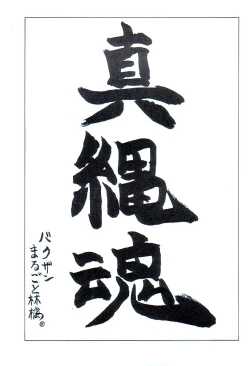 真縄魂
バクザン
まるごと林檎